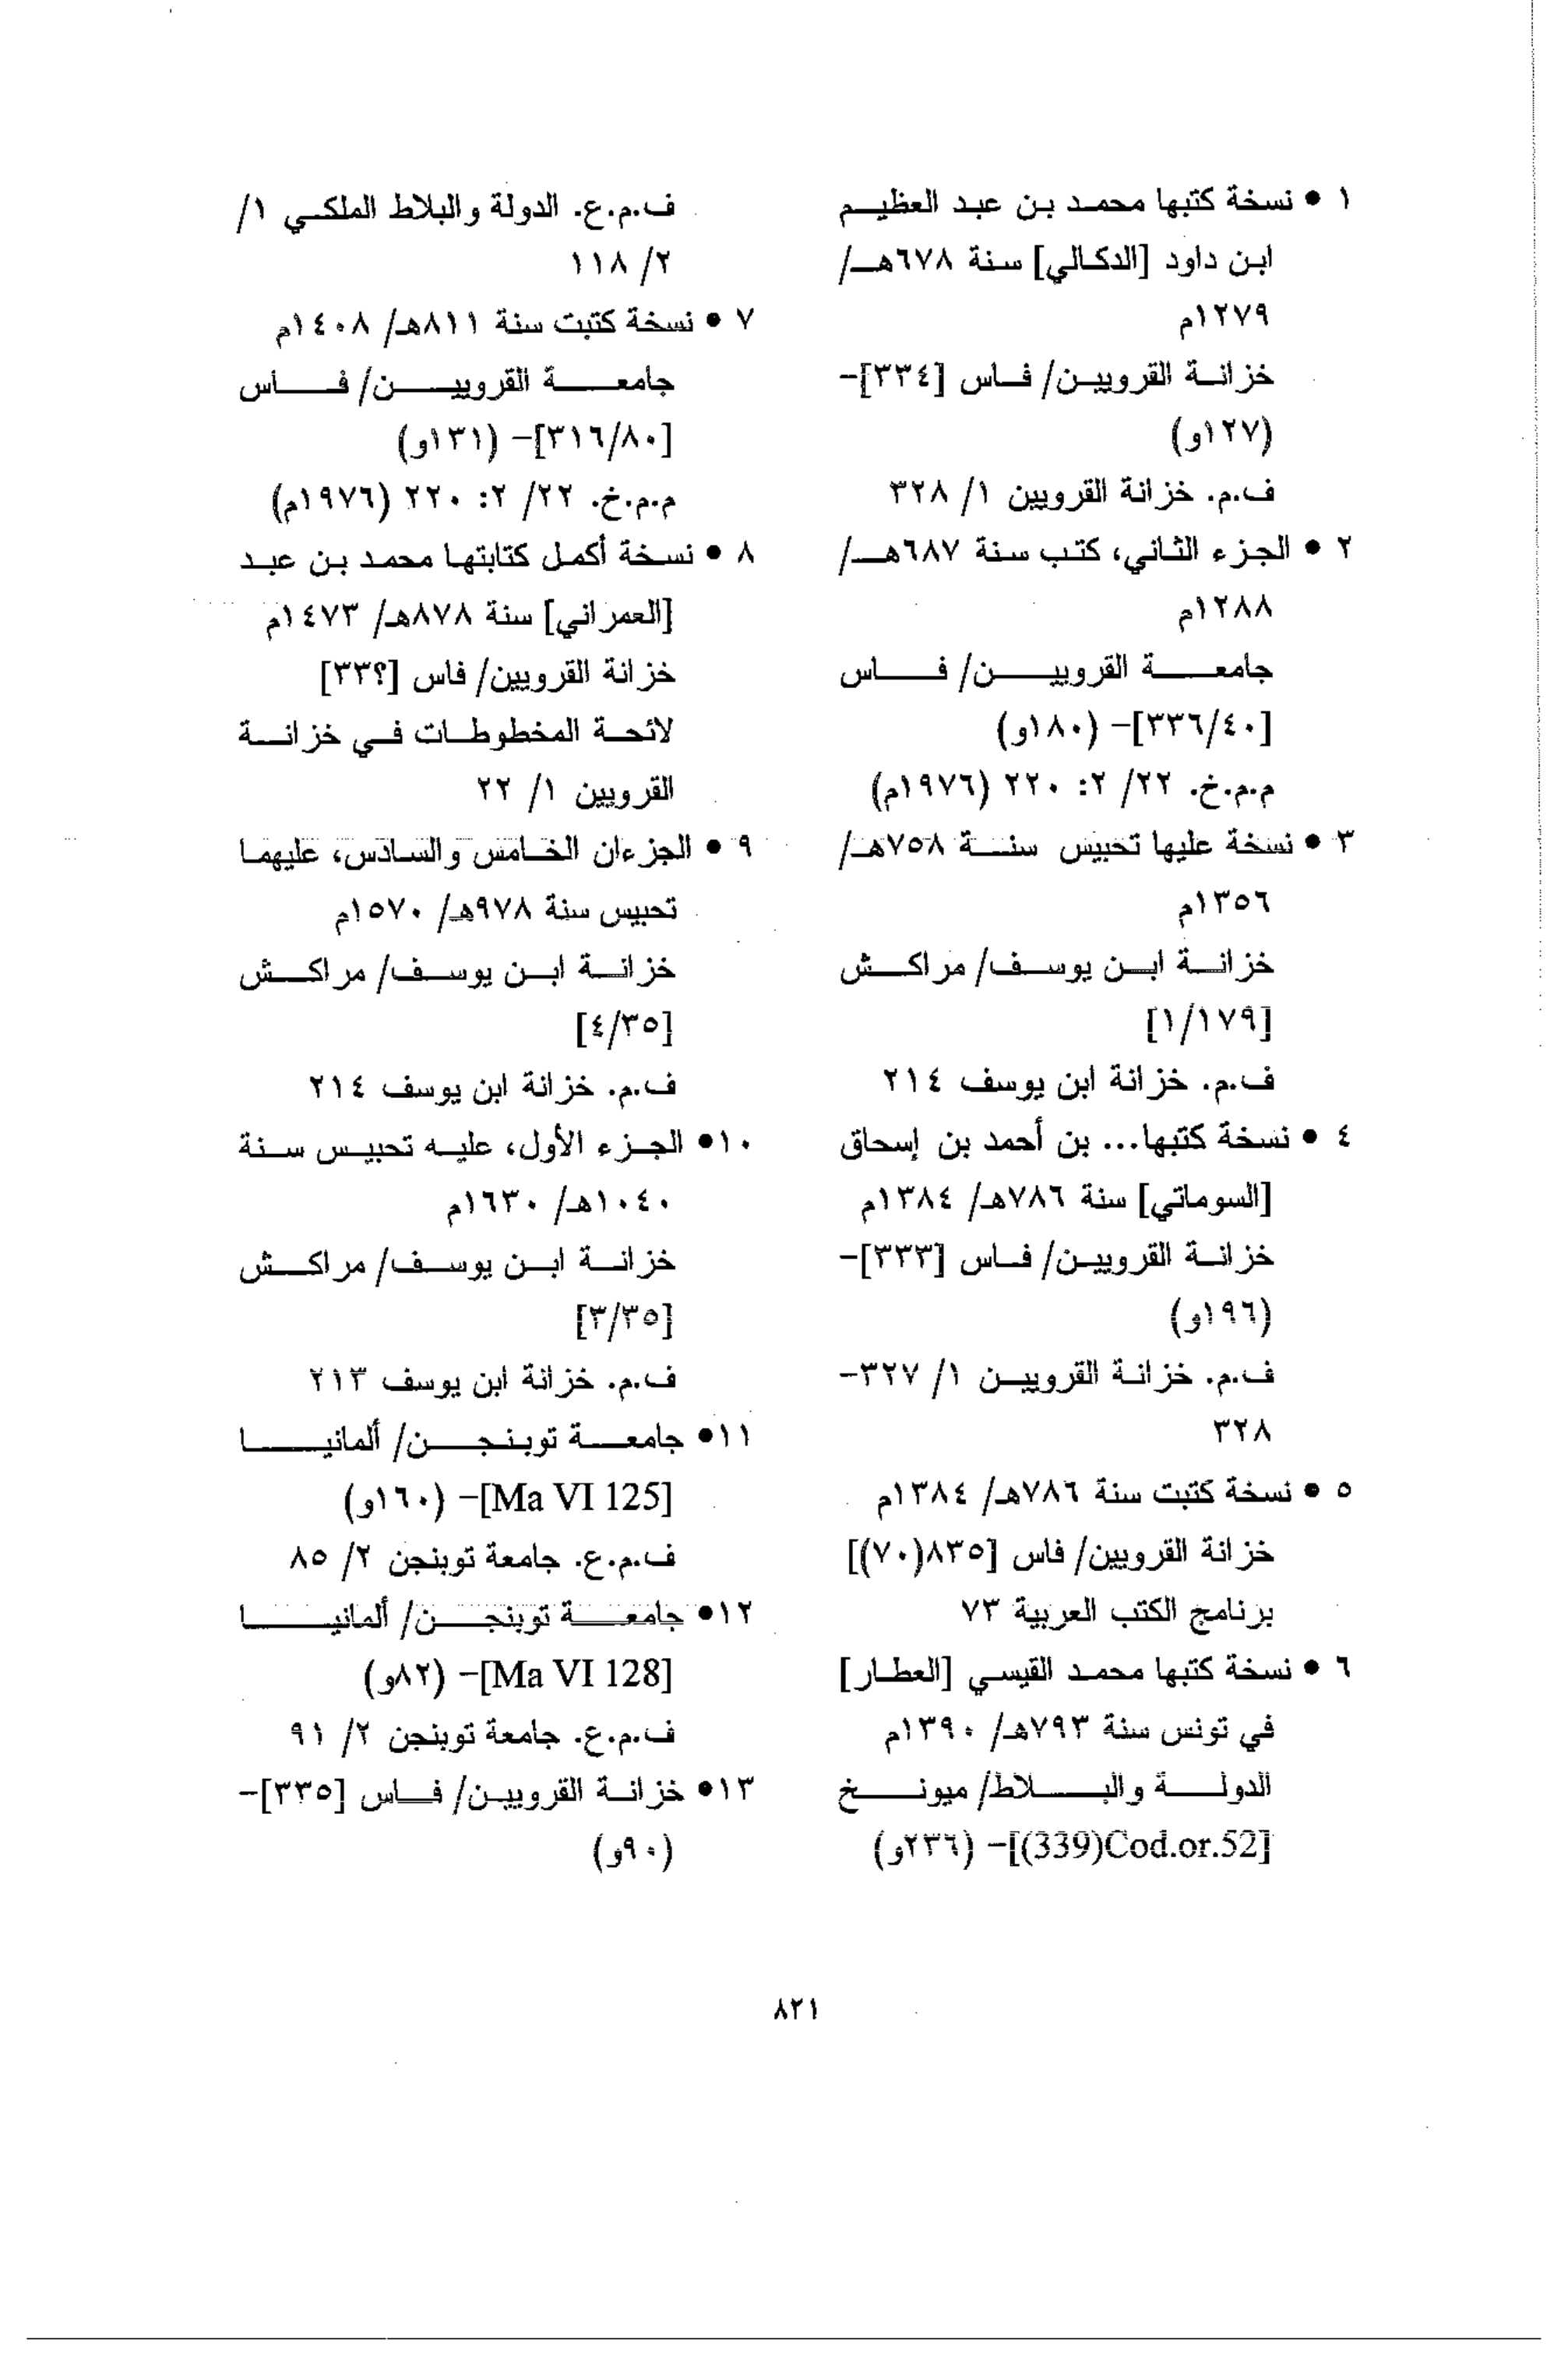 ١ • نسخة كتبها محمد بن عبد العظيم
ابن داود [الدكالي] سنة ٦٧٨هـ/
١٢٧٩م
خزانة القرويين/ فاس [٣٣٤]-
(١٢٧و)
ف.م. خزانة القرويين ١/ ٣٢٨
٢ • الجزء الثاني، كتب سنة ٦٨٧هـ/
١٢٨٨م
جامعة القرويين/ فاس
[٣٣٦/٤٠]- (١٨٠و)
م.م.خ. ٢٢/ ٢: ٢٢٠ (١٩٧٦م)
٣ • نسخة عليها تحبيس سنة ٧٥٨هـ/
١٣٥٦م
خزانة ابن يوسف/ مراكش
[١/١٧٩]
ف.م. خزانة ابن يوسف ٢١٤
٤ • نسخة كتبها... بن أحمد بن إسحاق
[السوماتي] سنة ٧٨٦هـ/ ١٣٨٤م
خزانة القرويين/ فاس [٣٣٣]-
(١٩٦و)
ف.م. خزانة القرويين ١/ ٣٢٧-
٣٢٨
٥ • نسخة كتبت سنة ٧٨٦هـ/ ١٣٨٤م
خزانة القرويين/ فاس [٨٣٥(٧٠)]
برنامج الكتب العربية ٧٣
٦ • نسخة كتبها محمد القيسي [العطار]
في تونس سنة ٧٩٣هـ/ ١٣٩٠م
الدولة والبلاط/ ميونخ
[Cod.or.52(339)]- (٢٣٦و)
ف.م.ع. الدولة والبلاط الملكي ١/
٢/ ١١٨
٧ • نسخة كتبت سنة ٨١١هـ/ ١٤٠٨م
جامعة القرويين/ فاس
[٣١٦/٨٠]- (١٣١و)
م.م.خ. ٢٢/ ٢: ٢٢٠ (١٩٧٦م)
٨ • نسخة أكمل كتابتها محمد بن عبد
[العمراني] سنة ٨٧٨هـ/ ١٤٧٣م
خزانة القرويين/ فاس [٣٣؟]
لائحة المخطوطات في خزانة
القرويين ١/ ٢٢
٩ • الجزءان الخامس والسادس، عليهما
تحبيس سنة ٩٧٨هـ/ ١٥٧٠م
خزانة ابن يوسف/ مراكش
[٤/٣٥]
ف.م. خزانة ابن يوسف ٢١٤
١٠• الجزء الأول، عليه تحبيس سنة
١٠٤٠هـ/ ١٦٣٠م
خزانة ابن يوسف/ مراكش
[٣/٣٥]
ف.م. خزانة ابن يوسف ٢١٣
١١• جامعة توبنجن/ ألمانيا
[Ma VI 125]- (١٦٠و)
ف.م.ع. جامعة توبنجن ٢/ ٨٥
١٢• جامعة توبنجن/ ألمانيا
[Ma VI 128]- (٨٢و)
ف.م.ع. جامعة توبنجن ٢/ ٩١
١٣• خزانة القرويين/ فاس [٣٣٥]-
(٩٠و)
٨٢١